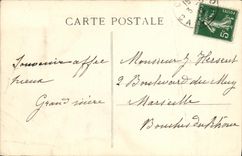 CARTE POSTALE
Souvenir affec
tueux
Grand'mère
Monsieur J. Hessent
2 Boulevard du Muy
Marseille
Bouches du Rhône
5